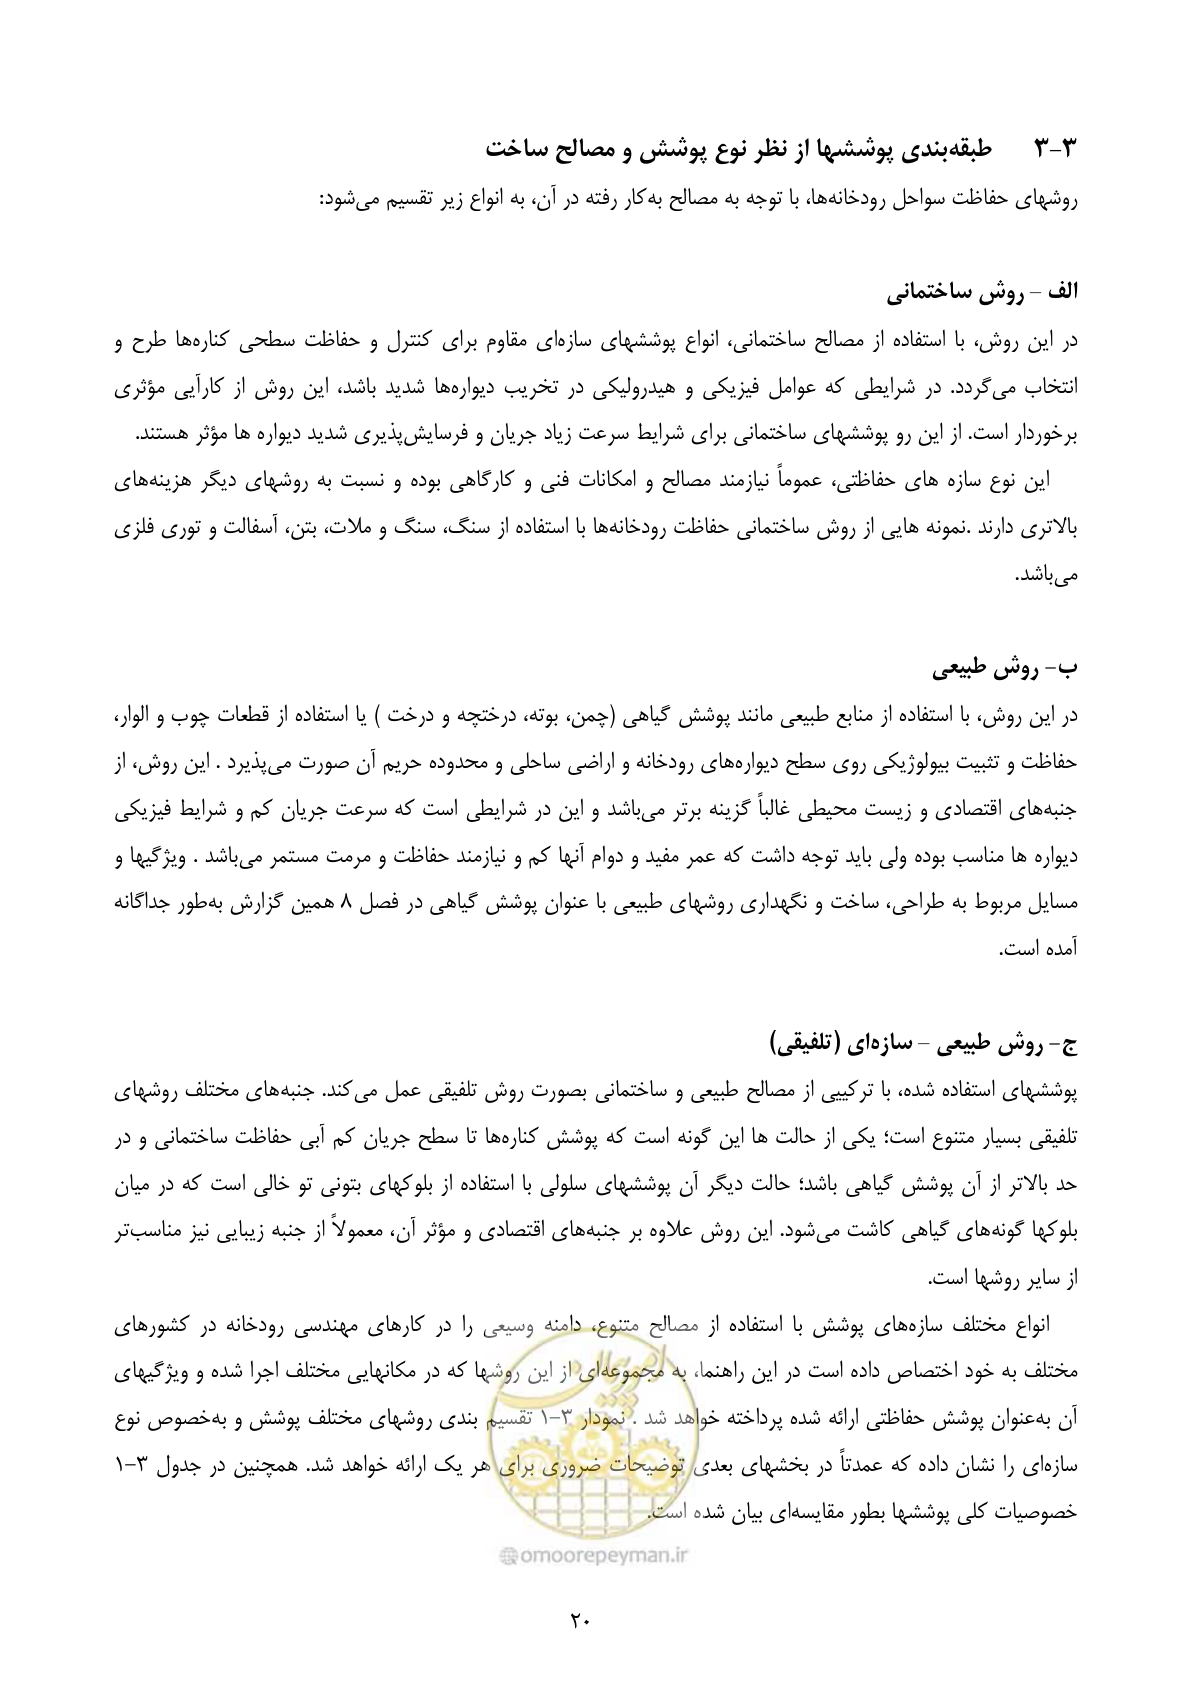 ۳-۳ طبقه‌بندی پوششها از نظر نوع پوشش و مصالح ساخت
روشهای حفاظت سواحل رودخانه‌ها، با توجه به مصالح به‌کار رفته در آن، به انواع زیر تقسیم می‌شود:
الف – روش ساختمانی
در این روش، با استفاده از مصالح ساختمانی، انواع پوششهای سازه‌ای مقاوم برای کنترل و حفاظت سطحی کناره‌ها طرح و
انتخاب می‌گردد. در شرایطی که عوامل فیزیکی و هیدرولیکی در تخریب دیواره‌ها شدید باشد، این روش از کارآیی مؤثری
برخوردار است. از این رو پوششهای ساختمانی برای شرایط سرعت زیاد جریان و فرسایش‌پذیری شدید دیواره ها مؤثر هستند.
این نوع سازه های حفاظتی، عموماً نیازمند مصالح و امکانات فنی و کارگاهی بوده و نسبت به روشهای دیگر هزینه‌های
بالاتری دارند .نمونه هایی از روش ساختمانی حفاظت رودخانه‌ها با استفاده از سنگ، سنگ و ملات، بتن، آسفالت و توری فلزی
می‌باشد.
ب- روش طبیعی
در این روش، با استفاده از منابع طبیعی مانند پوشش گیاهی (چمن، بوته، درختچه و درخت ) یا استفاده از قطعات چوب و الوار،
حفاظت و تثبیت بیولوژیکی روی سطح دیواره‌های رودخانه و اراضی ساحلی و محدوده حریم آن صورت می‌پذیرد . این روش، از
جنبه‌های اقتصادی و زیست محیطی غالباً گزینه برتر می‌باشد و این در شرایطی است که سرعت جریان کم و شرایط فیزیکی
دیواره ها مناسب بوده ولی باید توجه داشت که عمر مفید و دوام آنها کم و نیازمند حفاظت و مرمت مستمر می‌باشد . ویژگیها و
مسایل مربوط به طراحی، ساخت و نگهداری روشهای طبیعی با عنوان پوشش گیاهی در فصل ۸ همین گزارش به‌طور جداگانه
آمده است.
ج- روش طبیعی – سازه‌ای (تلفیقی)
پوششهای استفاده شده، با ترکیبی از مصالح طبیعی و ساختمانی بصورت روش تلفیقی عمل می‌کند. جنبه‌های مختلف روشهای
تلفیقی بسیار متنوع است؛ یکی از حالت ها این گونه است که پوشش کناره‌ها تا سطح جریان کم آبی حفاظت ساختمانی و در
حد بالاتر از آن پوشش گیاهی باشد؛ حالت دیگر آن پوششهای سلولی با استفاده از بلوکهای بتونی تو خالی است که در میان
بلوکها گونه‌های گیاهی کاشت می‌شود. این روش علاوه بر جنبه‌های اقتصادی و مؤثر آن، معمولاً از جنبه زیبایی نیز مناسب‌تر
از سایر روشها است.
انواع مختلف سازه‌های پوشش با استفاده از مصالح متنوع، دامنه وسیعی را در کارهای مهندسی رودخانه در کشورهای
مختلف به خود اختصاص داده است در این راهنما، به مجموعه‌ای از این روشها که در مکانهایی مختلف اجرا شده و ویژگیهای
آن به‌عنوان پوشش حفاظتی ارائه شده پرداخته خواهد شد . نمودار ۳-۱ تقسیم بندی روشهای مختلف پوشش و به‌خصوص نوع
سازه‌ای را نشان داده که عمدتاً در بخشهای بعدی توضیحات ضروری برای هر یک ارائه خواهد شد. همچنین در جدول ۳-۱
خصوصیات کلی پوششها بطور مقایسه‌ای بیان شده است.
امور پیمان
@omoorepeyman.ir
۲۰